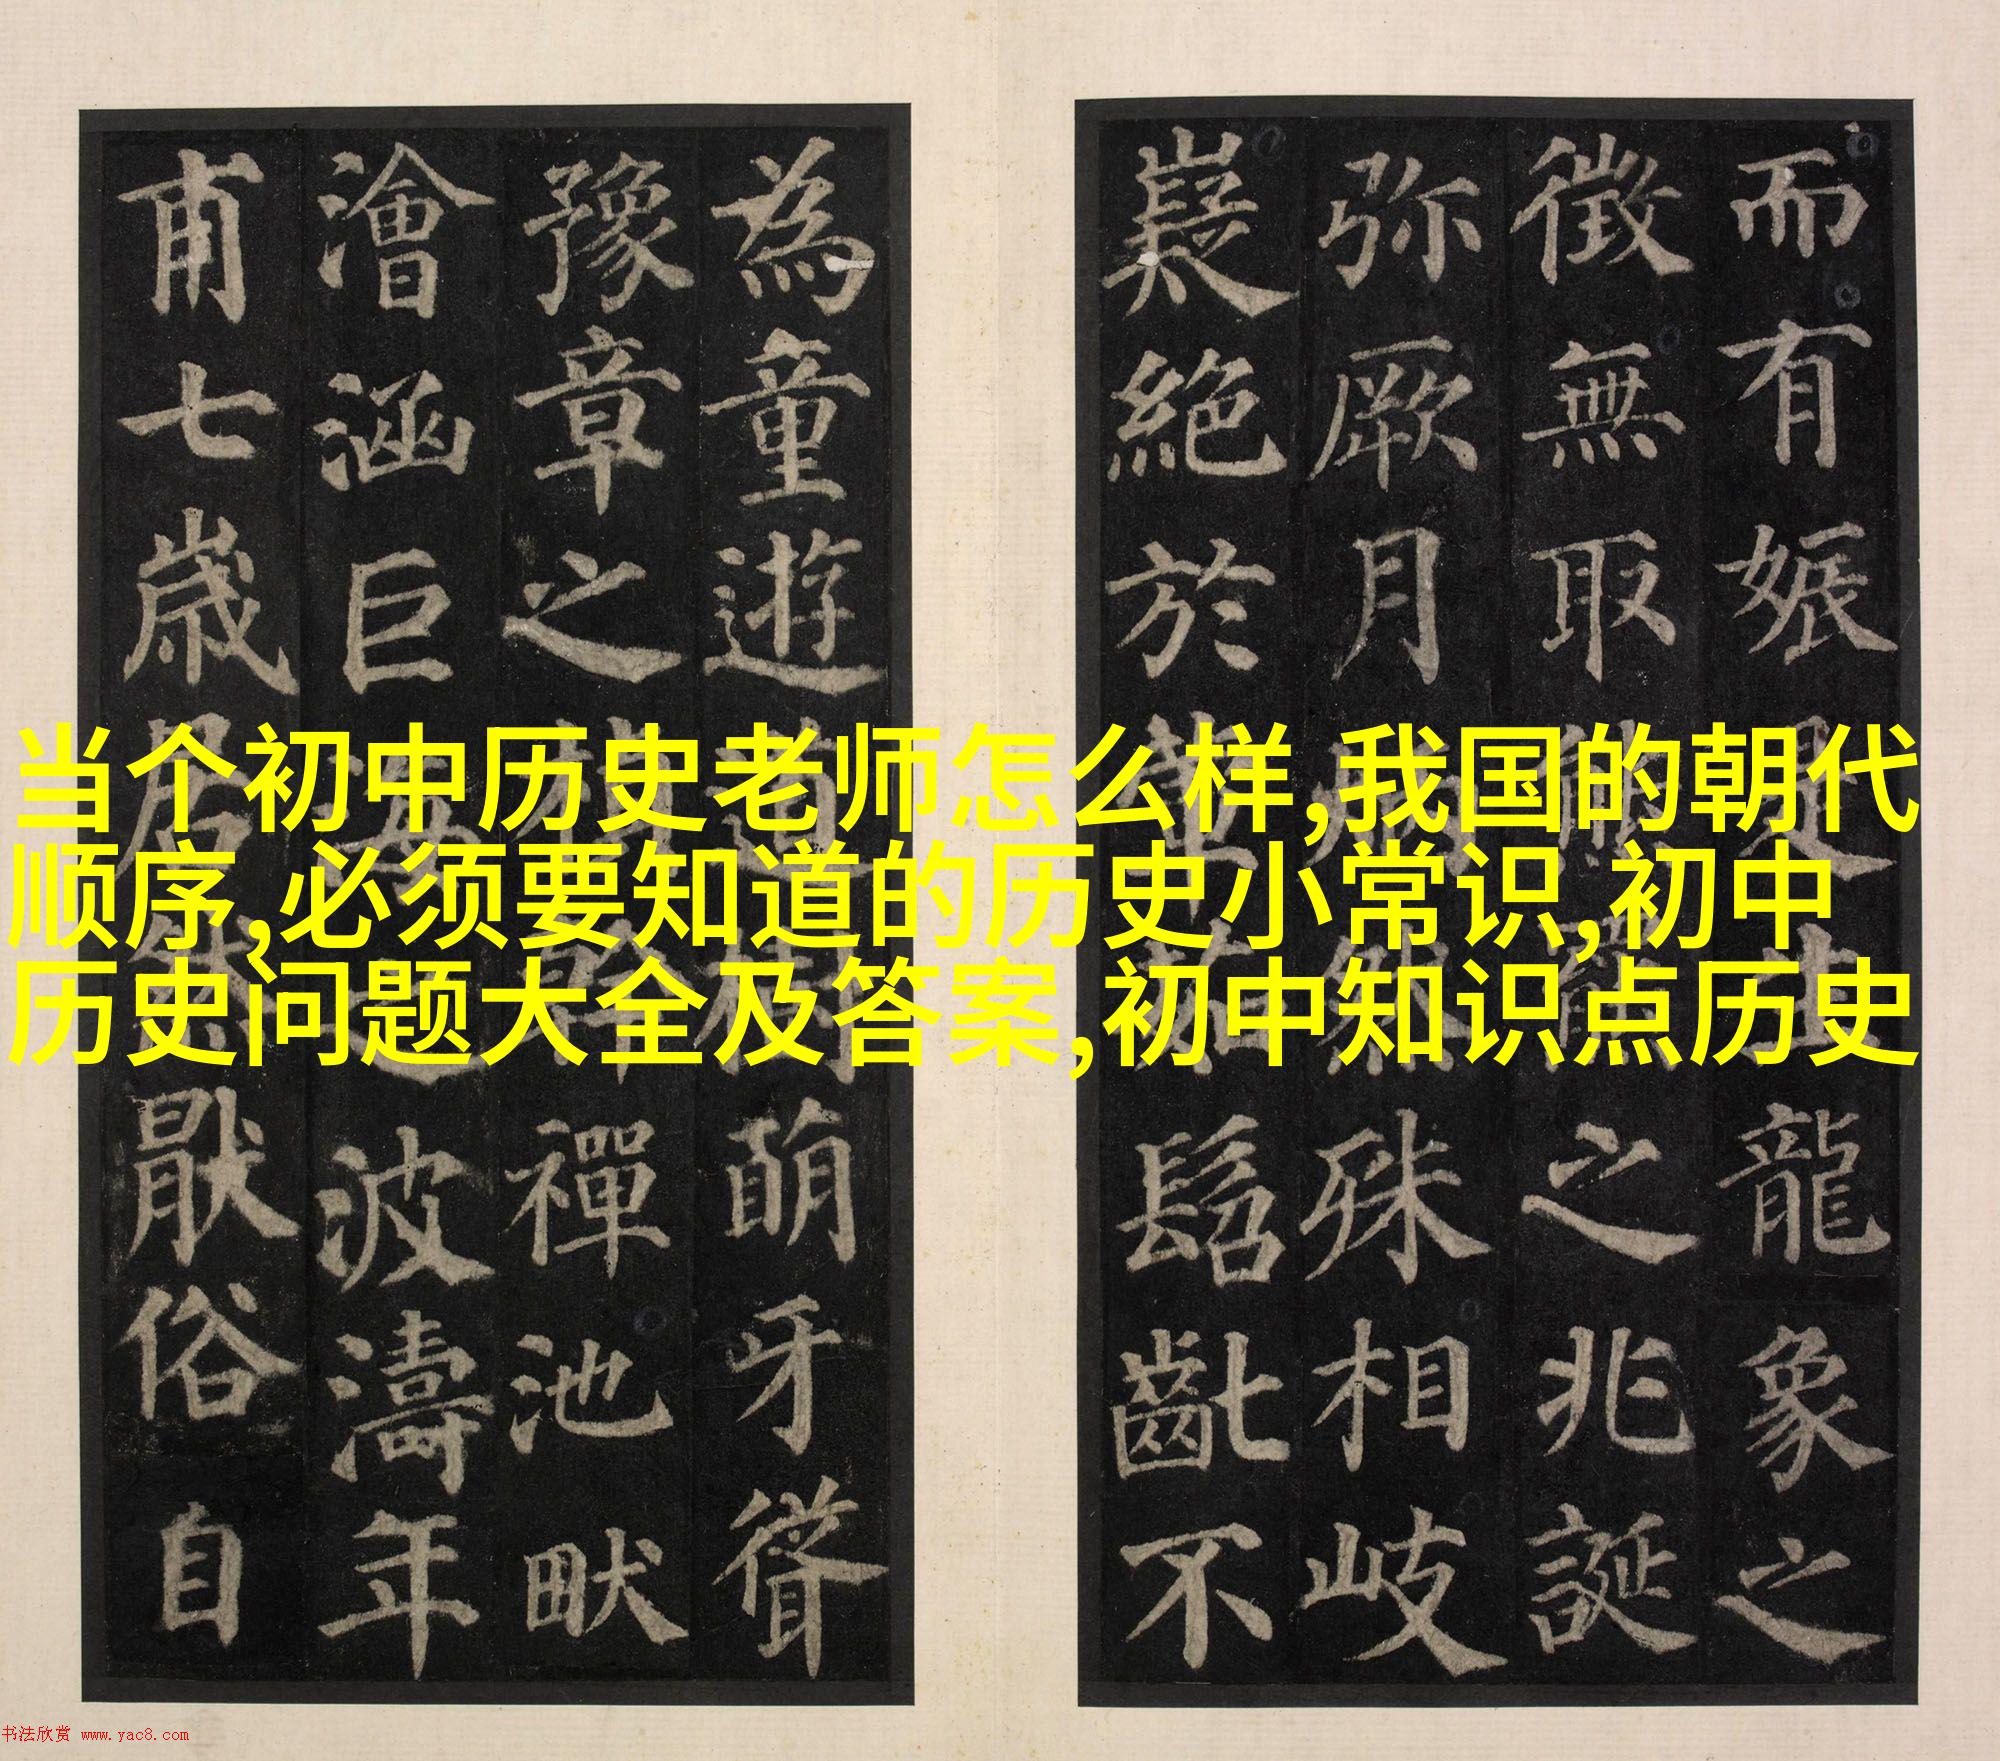 而有娠龍象之
徵無取之兆誕
弥厥月然殊相岐
嶷絕於髫齔不
為童遊道萌牙聳
豫章之禪池畎
澮涵巨海之波濤年
甫七歲居然厭俗自
当个初中历史老师怎么样,我国的朝代
顺序,必须要知道的历史小常识,初中
历史问题大全及答案,初中知识点历史
书法欣赏 www.yac8.com